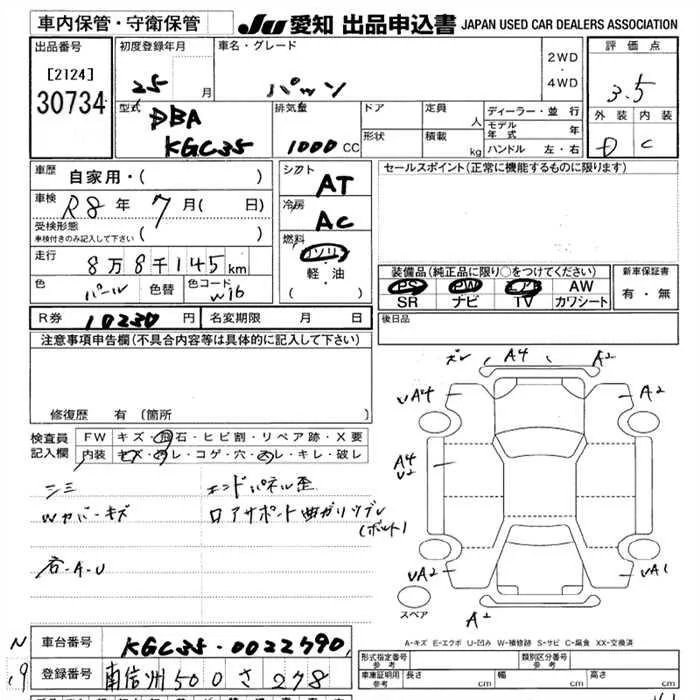 車内保管・守衛保管 JU 愛知 出品申込書 JAPAN USED CAR DEALERS ASSOCIATION
出品番号
[2124]
30734
初度登録年月
25 月
車名・グレード
パッソ
2WD
・
4WD
評価点
3.5
外装 内装
D C
型式
DBA
KGC35
排気量
1000 CC
ドア
形状
定員 人
積載 kg
ディーラー・並行
モデル年式 年
ハンドル 左・右
車歴 自家用・( )
車検 R8 年 7 月( 日)
受検形態
車検付きのみ記入して下さい ( )
走行 8万8千145km
色 パール 色替 色コード W16
シフト AT
冷房 AC
燃料 ガソリン
軽・油
( )
セールスポイント(正常に機能するものに限ります)
装備品(純正品に限り○をつけてください)
PS PW エアB AW
SR ナビ TV カワシート
新車保証書
有・無
R券 10230 円 名変期限 月 日
後日品
注意事項申告欄(不具合内容等は具体的に記入して下さい)
修復歴 有(箇所
検査員
記入欄
FW キズ・飛石・ヒビ割・リペア跡・X要
内装 キズ・汚レ・コゲ・穴・スレ・キレ・破レ
エンドパネル歪
Wカバーキズ
ロアサポート曲ガリツブレ
(ボルト)
右-A-U
ズレ A4 A2
UA4 A2
A4
U2
UA2 UA1
スペア
A2
A-キズ E-エクボ U-凹み W-補修跡 S-サビ C-腐食 XX-交換済
車台番号 KGC35-0022590
登録番号 500 さ 278
形式指定番号 類別区分番号
車庫証明用参考 長さ cm 幅 cm 高さ cm